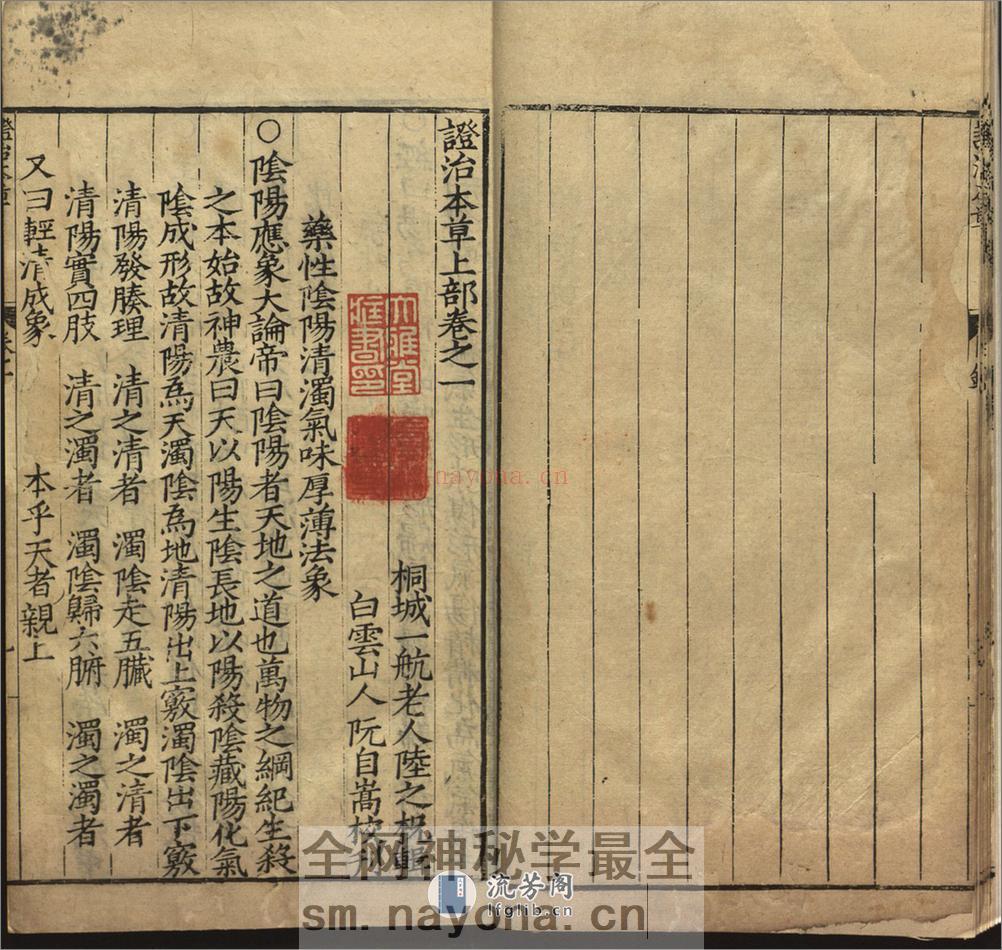 證治本草上部卷之一
桐城一航老人陸之柷輯
白雲山人阮自嵩校刊
藥性陰陽清濁氣味厚薄法象
〇陰陽應象大論帝曰陰陽者天地之道也萬物之綱紀生殺
之本始故神農曰天以陽生陰長地以陽殺陰藏陽化氣
陰成形故清陽爲天濁陰爲地清陽出上竅濁陰出下竅
清陽發腠理 清之清者 濁陰走五臟 濁之清者
清陽實四肢 清之濁者 濁陰歸六腑 濁之濁者
又曰輕清成象 本乎天者親上
大雅堂
全网神秘学最全
sm.nayona.cn
流芳阁
lfglib.cn
nayona.cn